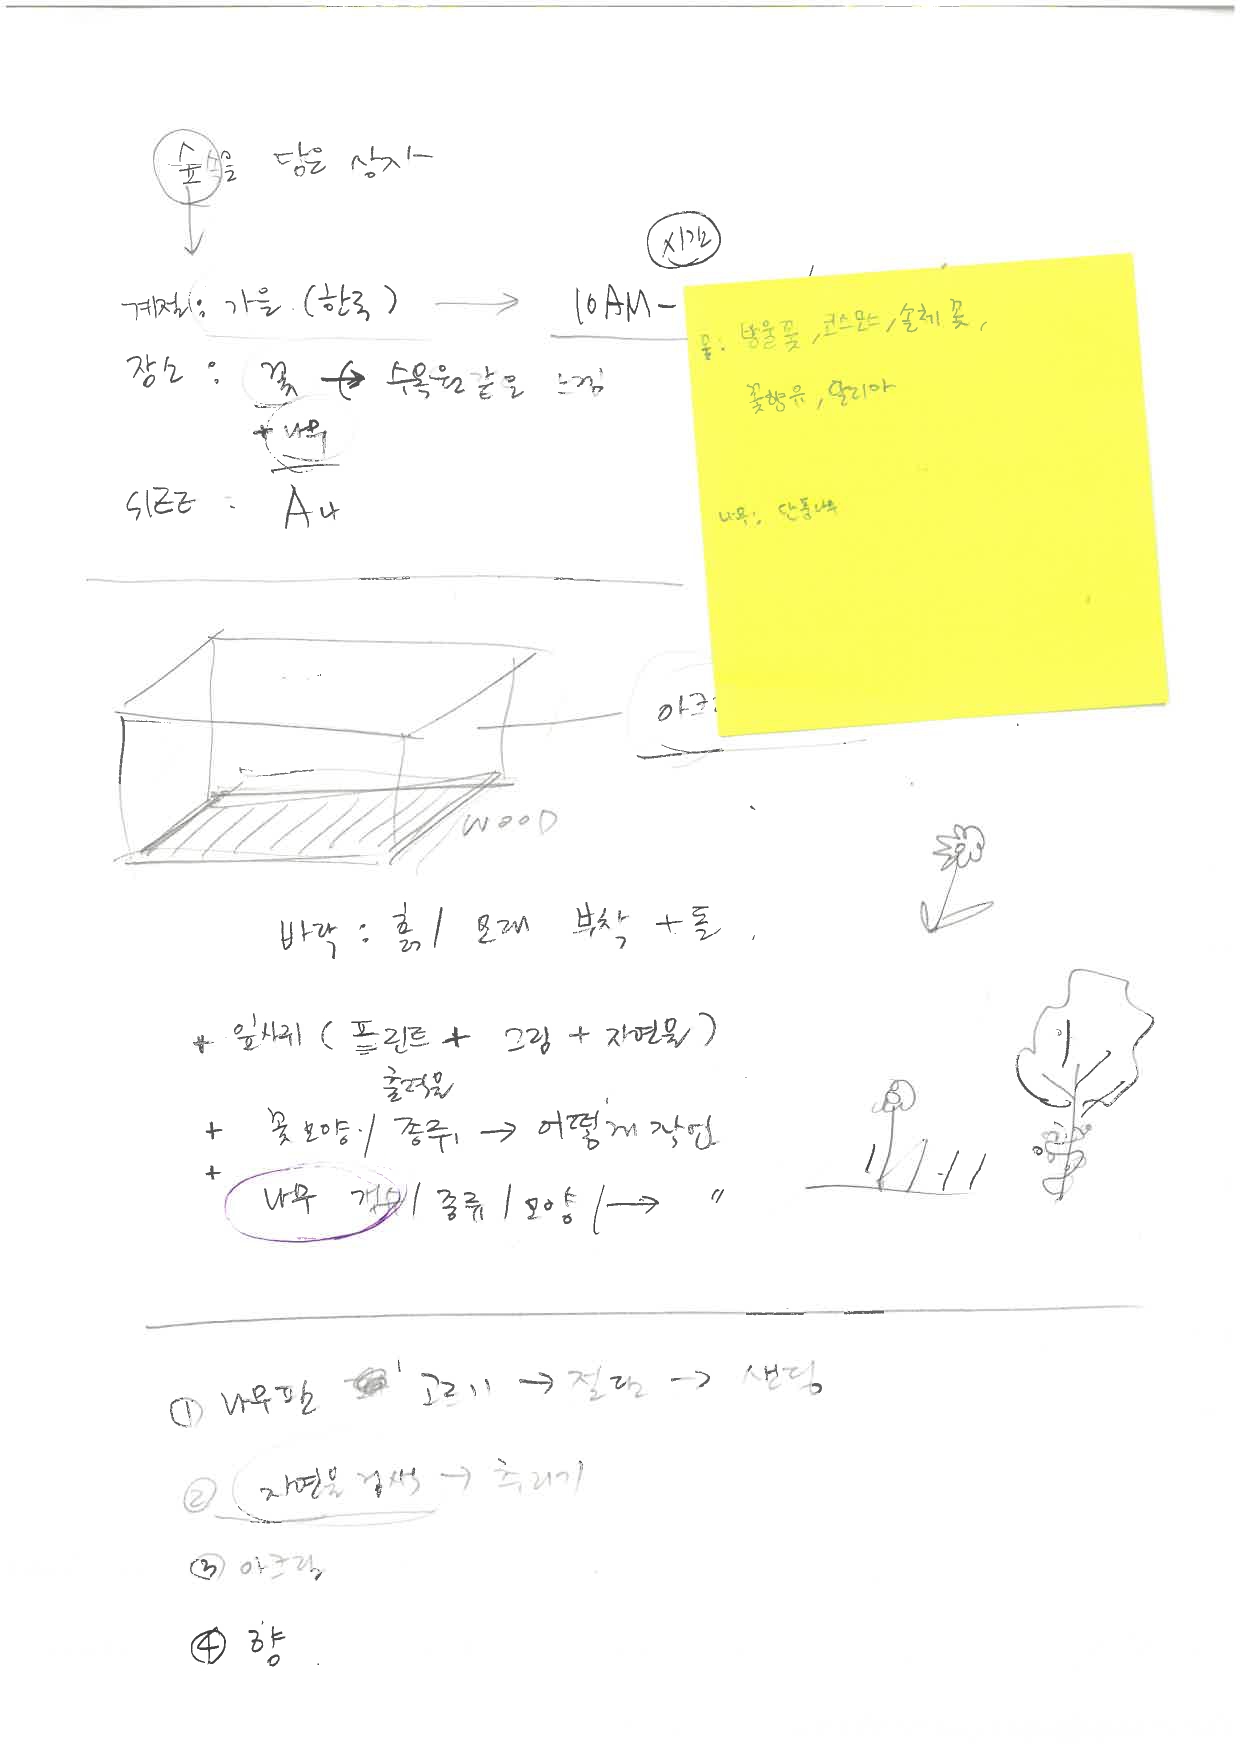 숲을 담은 상자
시간
계절: 가을 (한국) → 10AM-
장소: 꽃 → 수목원 같은 느낌
+ 나무
SIZE: A4
꽃: 방울꽃, 코스모스, 솔체꽃,
꽃향유, 달리아
나무: 단풍나무
아크
WOOD
바닥: 흙/ 모래 부착 + 돌
+ 잎사귀 (프린트 + 그림 + 자연물)
출력물
+ 꽃모양/ 종류 → 어떻게 작업
+
나무 개수/ 종류/ 모양/ → "
① 나무판 고르기 → 절단 → 샌딩
② 자연물 검색 → 추리기
③ 아크릴
④ 향